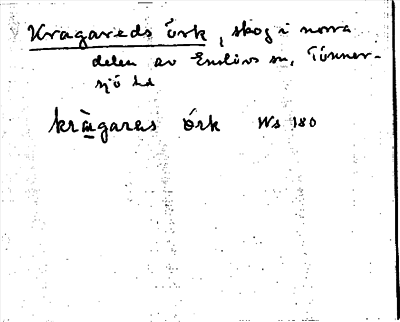 Kragareds örk, skog i norra
delen av Enslövs sn, Tönner-
sjö hd
kràgaras örk Ws 180